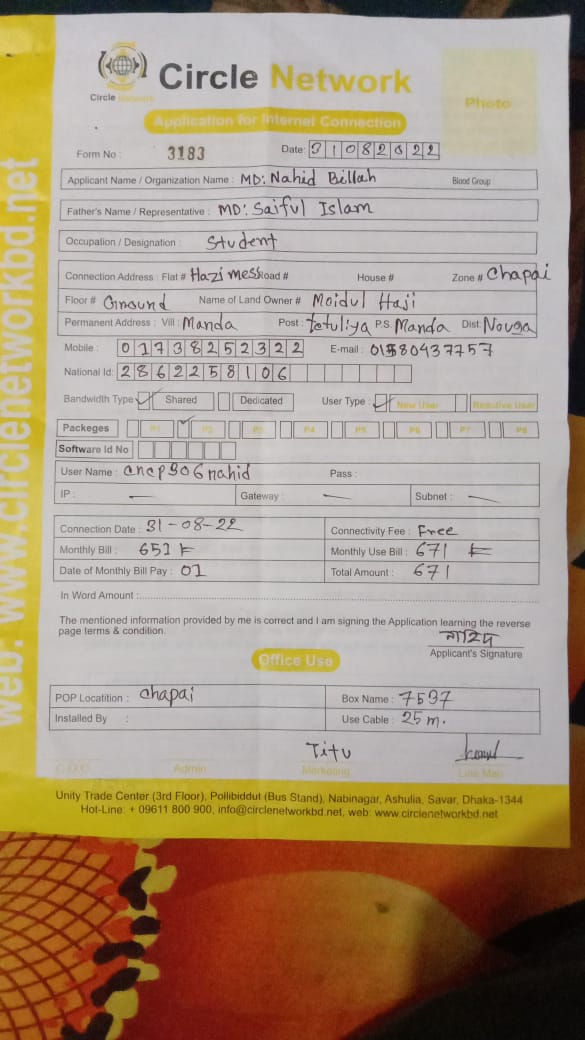 Circle Network
Circle Network
Application for Internet Connection
Photo
Form No : 3183 Date: 31082022
Applicant Name / Organization Name : MD: Nahid Billah Blood Group :
Father's Name / Representative : MD: Saiful Islam
Occupation / Designation : Student
Connection Address : Flat # Hazi mess Road # House # Zone # Chapai
Floor # Ground Name of Land Owner # Moidul Haji
Permanent Address : Vill : Manda Post : tetuliya P.S. Manda Dist: Nouga
Mobile : 01738252322 E-mail : 01580437757
National Id: 2862258106
Bandwidth Type Shared Dedicated User Type : New User Reactive User
Packeges P1 P2 P3 P4 P5 P6 P7 P8
Software Id No
User Name : cncp906nahid Pass :
IP : — Gateway : — Subnet : —
Connection Date : 31-08-22 Connectivity Fee : Free
Monthly Bill : 651 Monthly Use Bill : 671
Date of Monthly Bill Pay : 01 Total Amount : 671
In Word Amount :
The mentioned information provided by me is correct and I am signing the Application learning the reverse
page terms & condition.
নাহিদ
Applicant's Signature
Office Use
POP Locatition : chapai Box Name : 7597
Installed By : Use Cable : 25 m.
Titu
C.O.O Admin Marketing Line Man
Unity Trade Center (3rd Floor), Pollibiddut (Bus Stand), Nabinagar, Ashulia, Savar, Dhaka-1344
Hot-Line: + 09611 800 900, info@circlenetworkbd.net, web: www.circlenetworkbd.net
web: www.circlenetworkbd.net